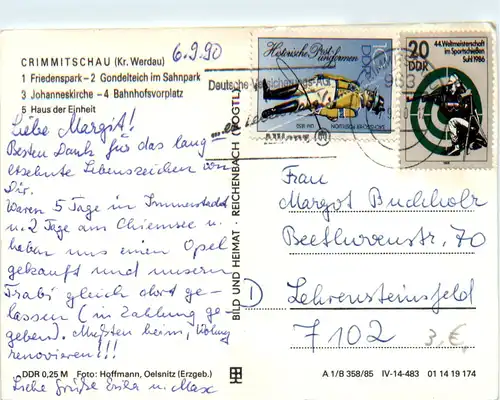 CRIMMITSCHAU (Kr. Werdau)
6.9.90
1 Friedenspark – 2 Gondelteich im Sahnpark
3 Johanneskirche – 4 Bahnhofsvorplatz
5 Haus der Einheit
Liebe Margit!
Besten Dank für das lang
ersehnte Lebenszeichen von
Dir.
Waren 5 Tage in Immenstadt
u. 2 Tage am Chiemsee u.
haben uns einen Opel
gekauft und unsern
Trabi gleich dort ge-
lassen (in Zahlung ge-
geben). Mußten heim, Wohng
renovieren!!!
Liebe Grüße Erika u. Max
DDR 0,25 M Foto: Hoffmann, Oelsnitz (Erzgeb.)
BILD UND HEIMAT · REICHENBACH (VOGTL)
Historische Postuniformen
DDR
UM 1850
Deutsche Versicherungs-AG
Allianz
963
20
DDR
44. Weltmeisterschaft
im Sportschießen
Suhl 1986
Frau
Margot Buchholz
Beethovenstr. 70
D
Lehrensteinsfeld
7102
3,€
A 1/B 358/85 IV-14-483 01 14 19 174